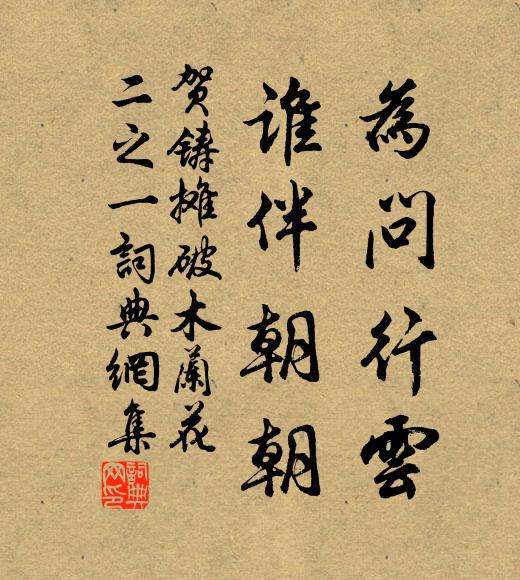 為問行雲
誰伴朝朝
賀鑄攤破木蘭花
二之一詞典網集
詞典
网印